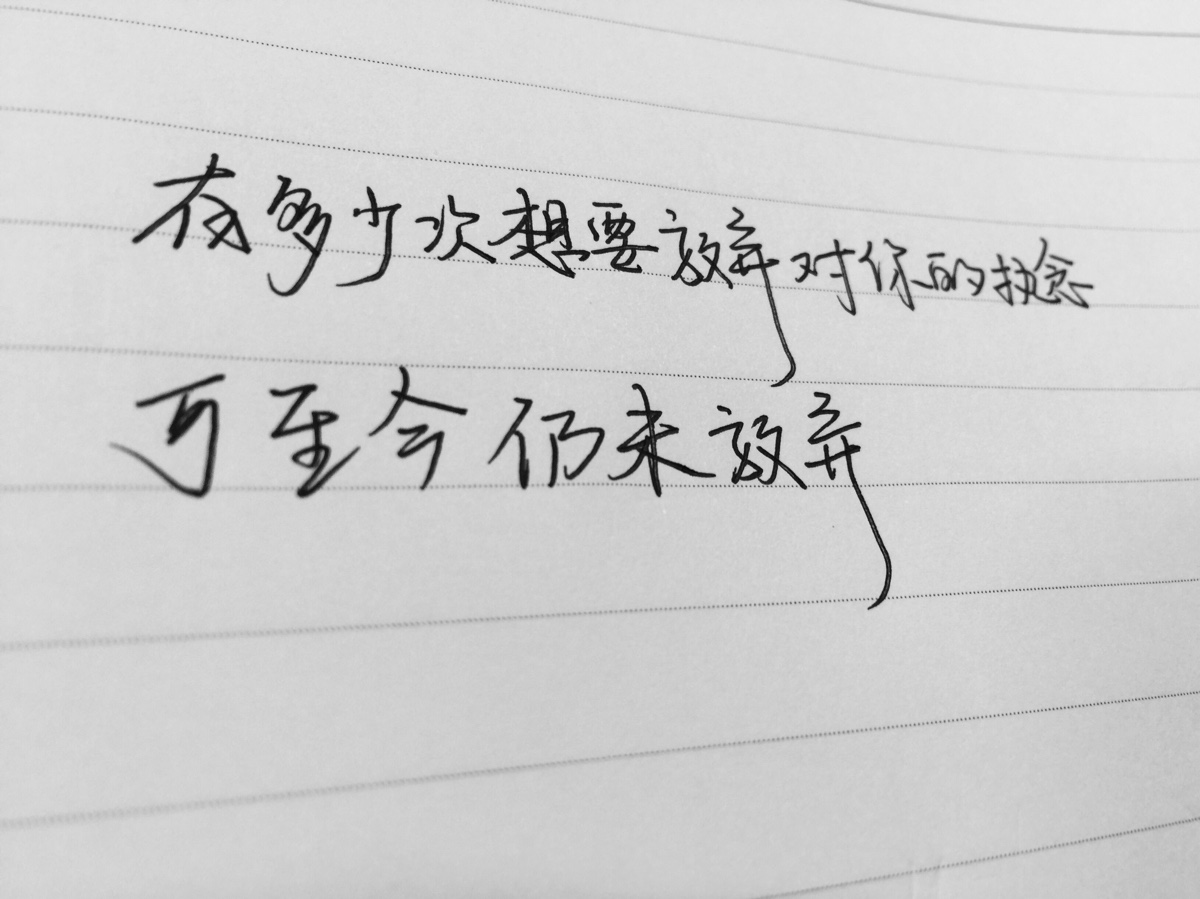 有多少次想要放弃对你的执念
可至今仍未放弃